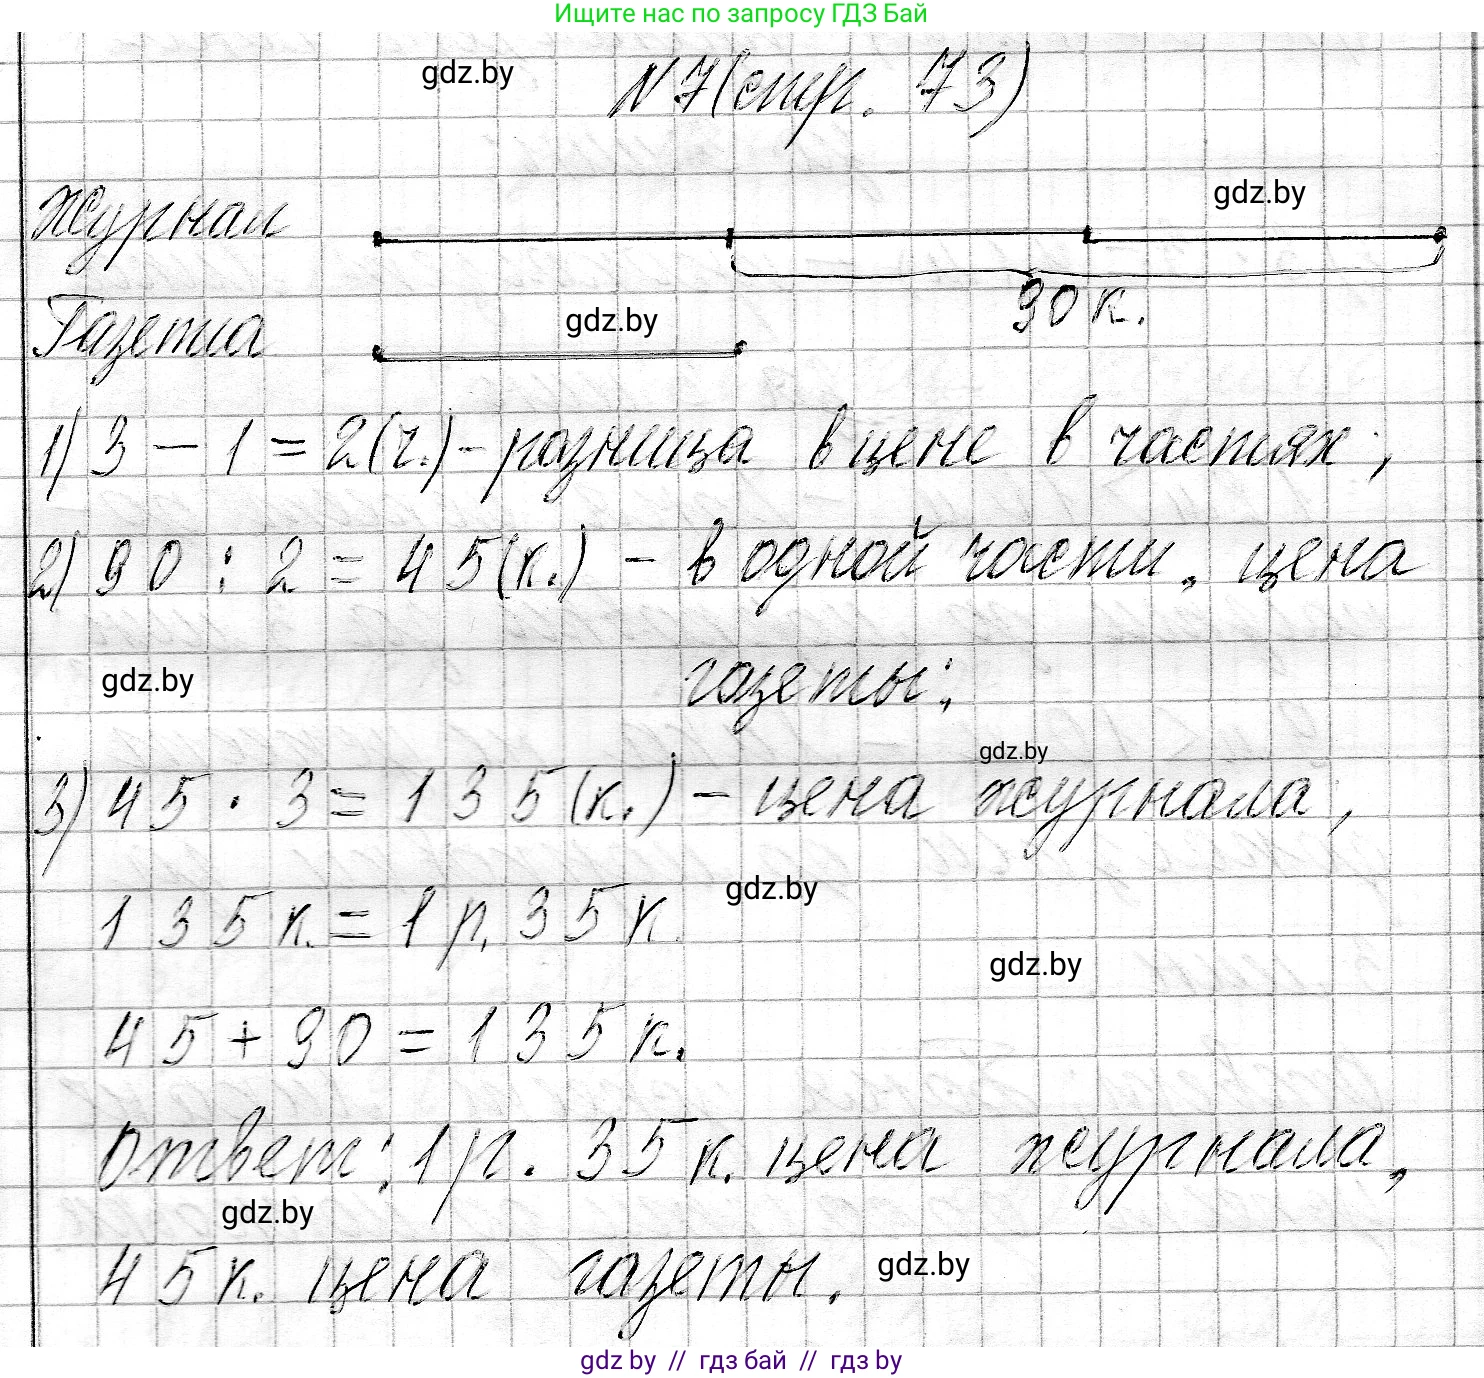 Ищите нас по запросу ГДЗ Бай
gdz.by
№7(стр. 73)
gdz.by
Журнал
90 к.
Газета
gdz.by
1) 3 - 1 = 2(ч.) - разница в цене в частях;
2) 90 : 2 = 45(к.) - в одной части, цена
газеты;
gdz.by
gdz.by
3) 45 · 3 = 135(к.) - цена журнала,
135к. = 1р. 35к
gdz.by
gdz.by
45 + 90 = 135к.
Ответ: 1р. 35к. цена журнала,
gdz.by
45к. цена газеты.
gdz.by
gdz by // гдз бай // гдз by